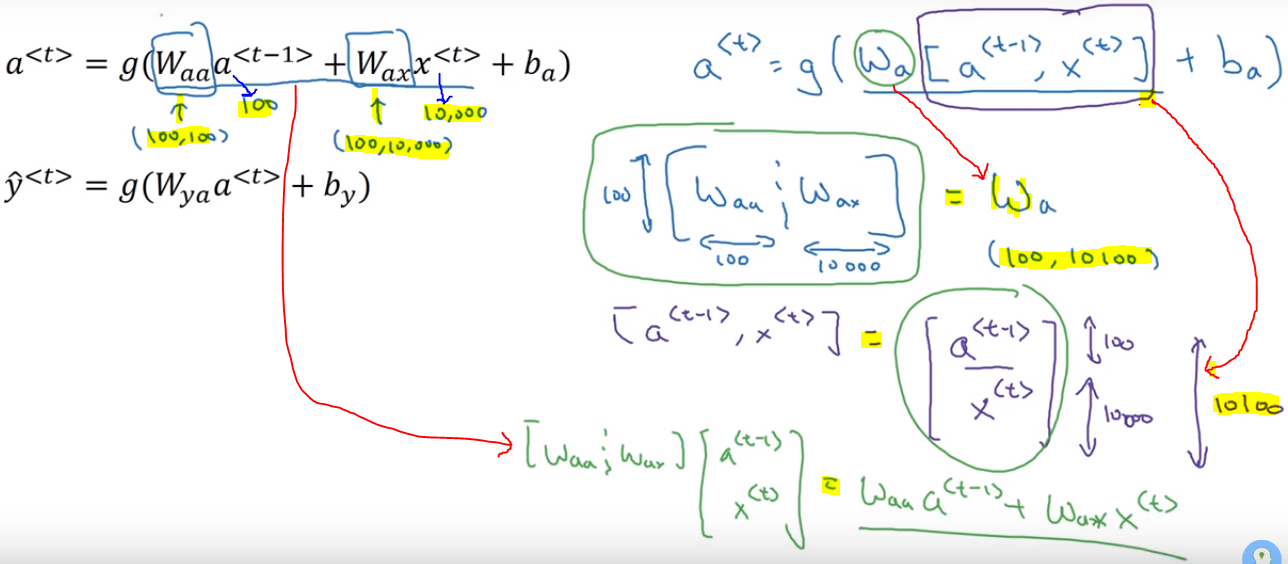 a^{<t>} = g(W_{aa}a^{<t-1>} + W_{ax}x^{<t>} + b_a)
a^{<t>} = g(W_a [a^{<t-1>}, x^{<t>}] + b_a)
↑ 100 ↑ 10,000
(100,100) (100,10,000)
ŷ^{<t>} = g(W_{ya}a^{<t>} + b_y)
100 ↕ [W_{aa} ¦ W_{ax}] = W_a
100 10000
(100, 10100)
[a^{<t-1>}, x^{<t>}] = [a^{<t-1>} / x^{<t>}] ↕ 100 ↕ 10000 ↕ 10100
[W_{aa} ¦ W_{ax}] [a^{<t-1>} x^{<t>}] = W_{aa}a^{<t-1>} + W_{ax}x^{<t>}